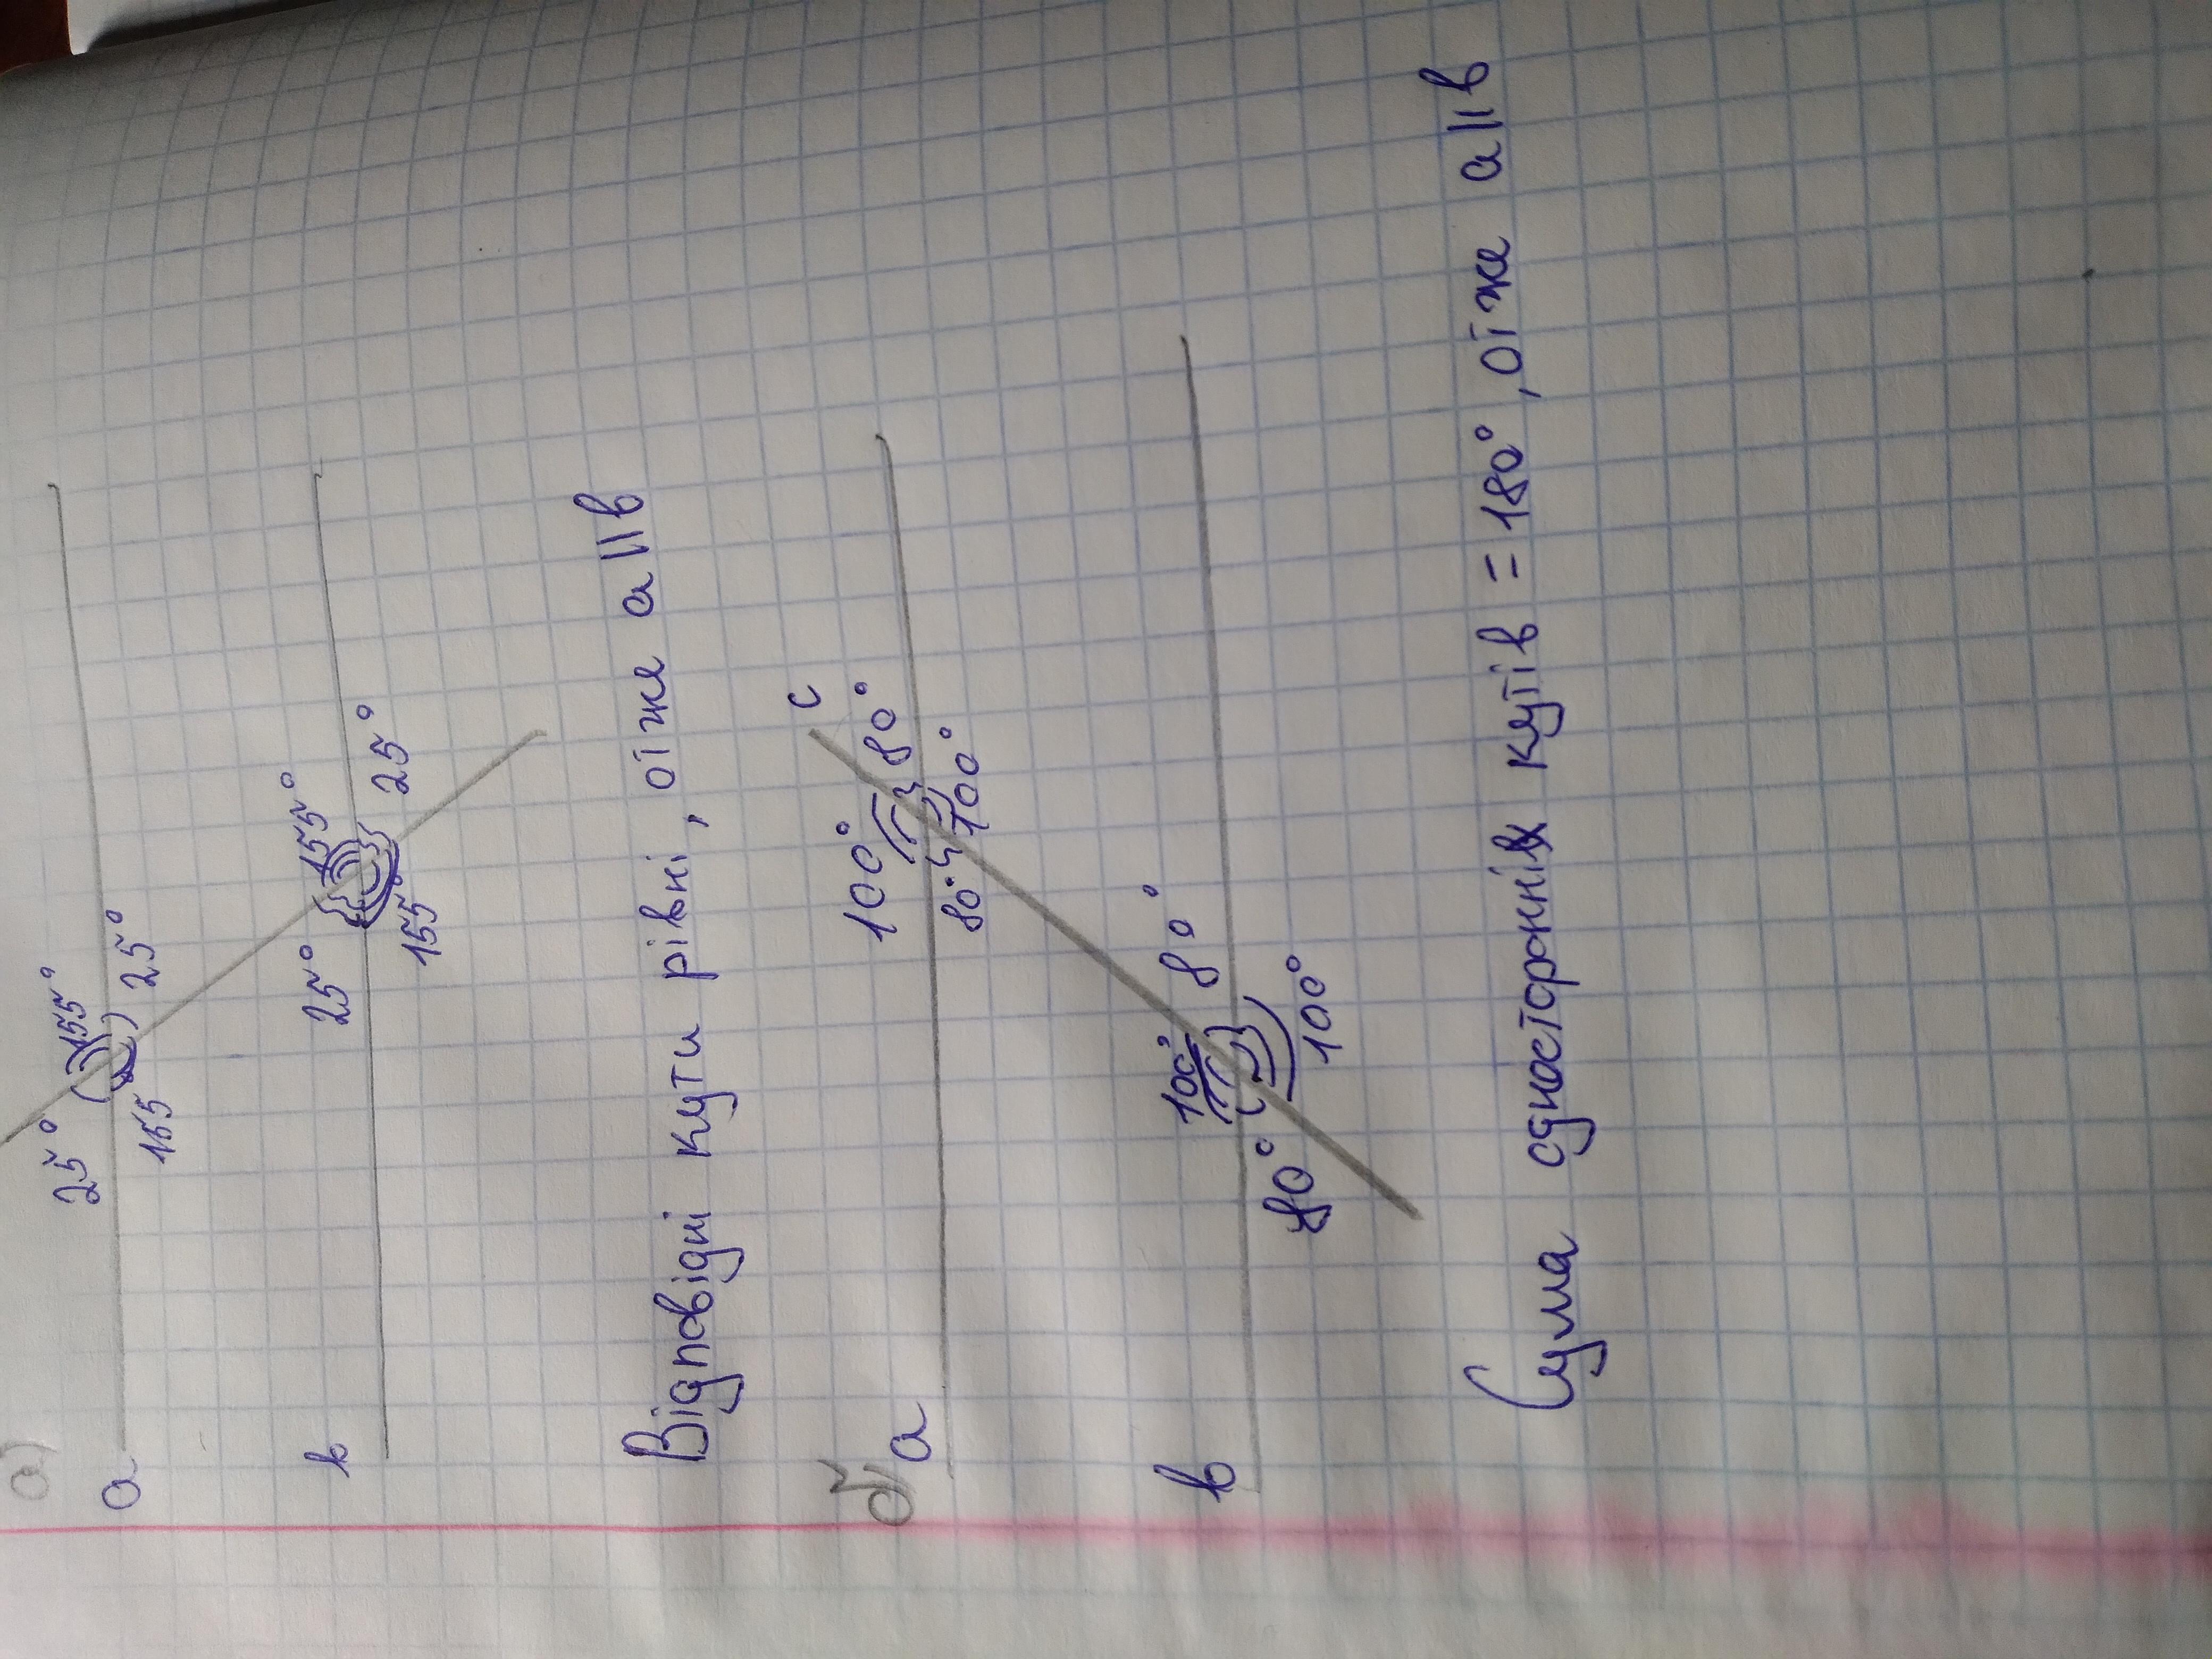 а)
25° 155°
а
155 25°
25° 155°
в
155° 25°
Відповідні кути рівні, отже a||в
б)
с
100° 80°
а
80° 100°
100° 80°
в
80° 100°
Сума односторонніх кутів = 180°, отже a||в